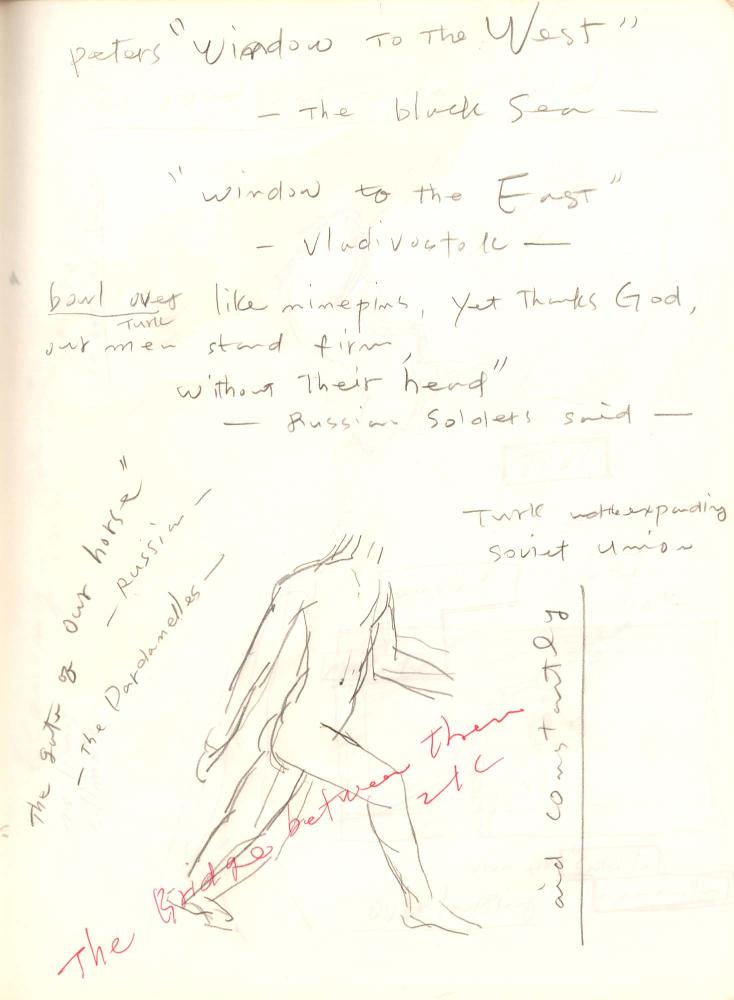 peters "Window To The West"
— The black Sea —
"window to the East"
— Vladivostok —
bowl over like ninepins, yet Thanks God,
Turk
our men stand firm,
without Their head"
— Russian Soldiers said —
The gate of our horse"
— Russian —
— The Dardanelles —
Turk expanding
Soviet Union
and constantly
The Bridge between them